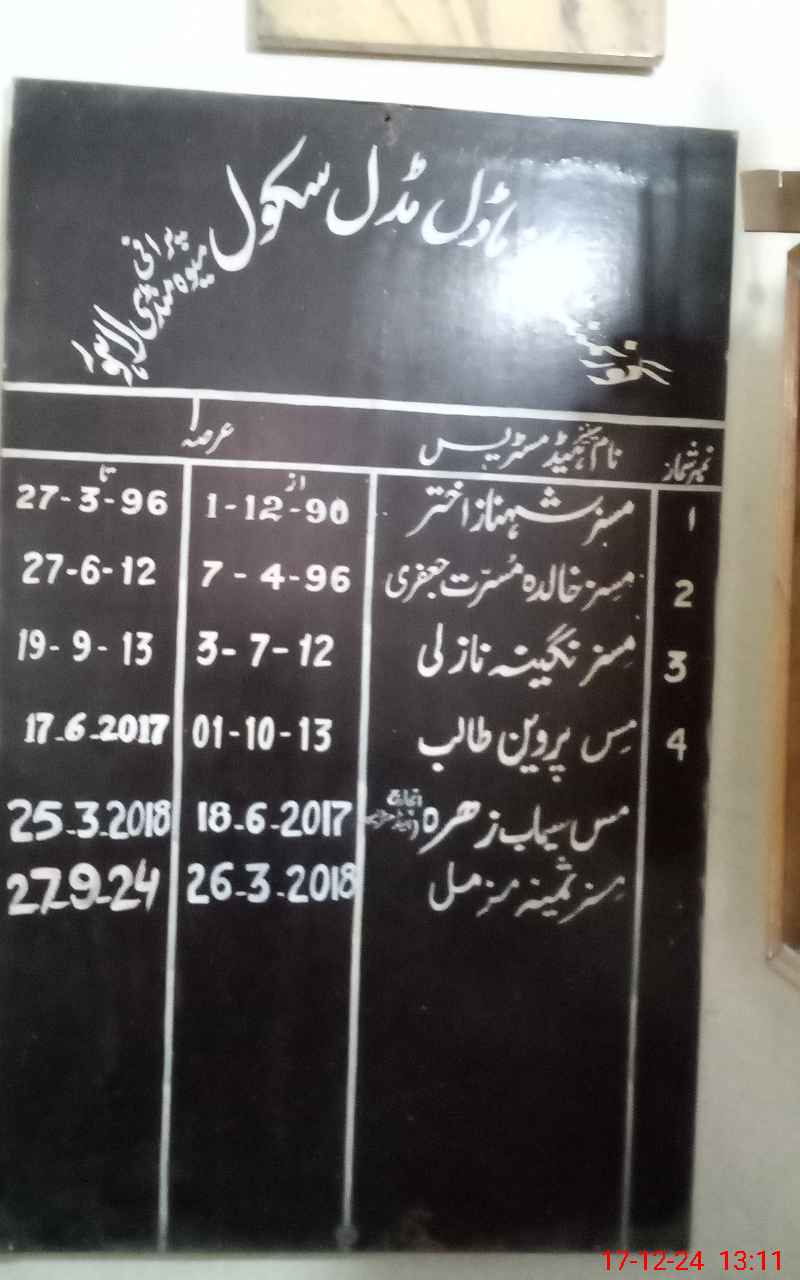 ماڈل مڈل سکول
پرانی
میوہ منڈی لاہور
نمبر شمار نام سینئر ہیڈ مسٹریس عرصہ
1 مسز شہناز اختر از 1-12-90 تا 27-3-96
2 مسز خالدہ مسرت جعفری 7-4-96 27-6-12
3 مسز نگینہ نازلی 3-7-12 19-9-13
4 مس پروین طالب 01-10-13 17-6-2017
مس سیماب زھرہ 18-6-2017 25-3-2018
مسز ثمینہ مزمل 26-3-2018 27-9-24
17-12-24 13:11